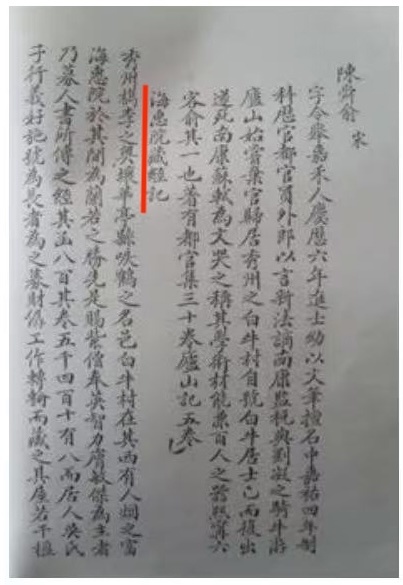 陳舜俞 宋
字令舉嘉禾人慶曆六年進士幼以文筆擅名中嘉祐四年制
科歷官都官員外郎以言新法謫南康監稅與劉凝之騎牛游
廬山始嘗棄官歸居秀州之白牛村自號白牛居士已而復出
遂死南康蘇軾為文哭之稱其學術材能兼百人之器熙寧六
客俞其一也著有都官集三十卷廬山記五卷
海惠院藏經記
秀州檇李之奧壤華亭縣唳鶴之名邑白牛村在其西有人烟之富
海惠院於其間為蘭若之勝先是賜紫僧奉英智力膚敏傑為主者
乃募人書所傳之經其函八百其卷五千四百十有八而居人吳氏
子行義好施號為長者為之募財僝工作轉輪而藏之其屋若干楹